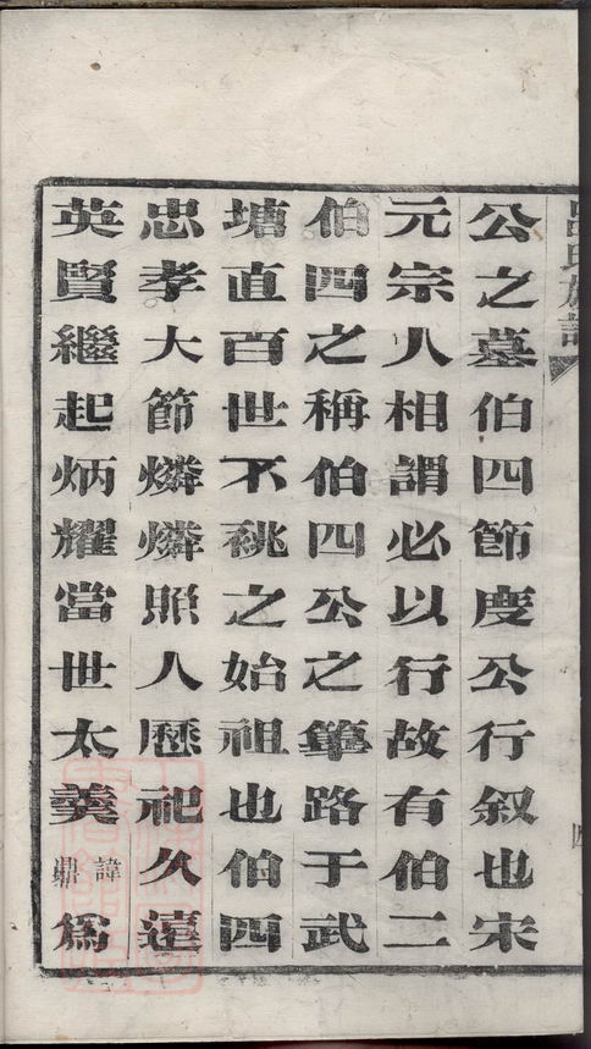 公之墓伯四節度公行叙也宋
元宗人相謂必以行故有伯二
伯四之稱伯四公之篳路于武
塘直百世不祧之始祖也伯四
忠孝大節燐燐照人歷祀久遠
英賢繼起炳耀當世太羹諱鼎為